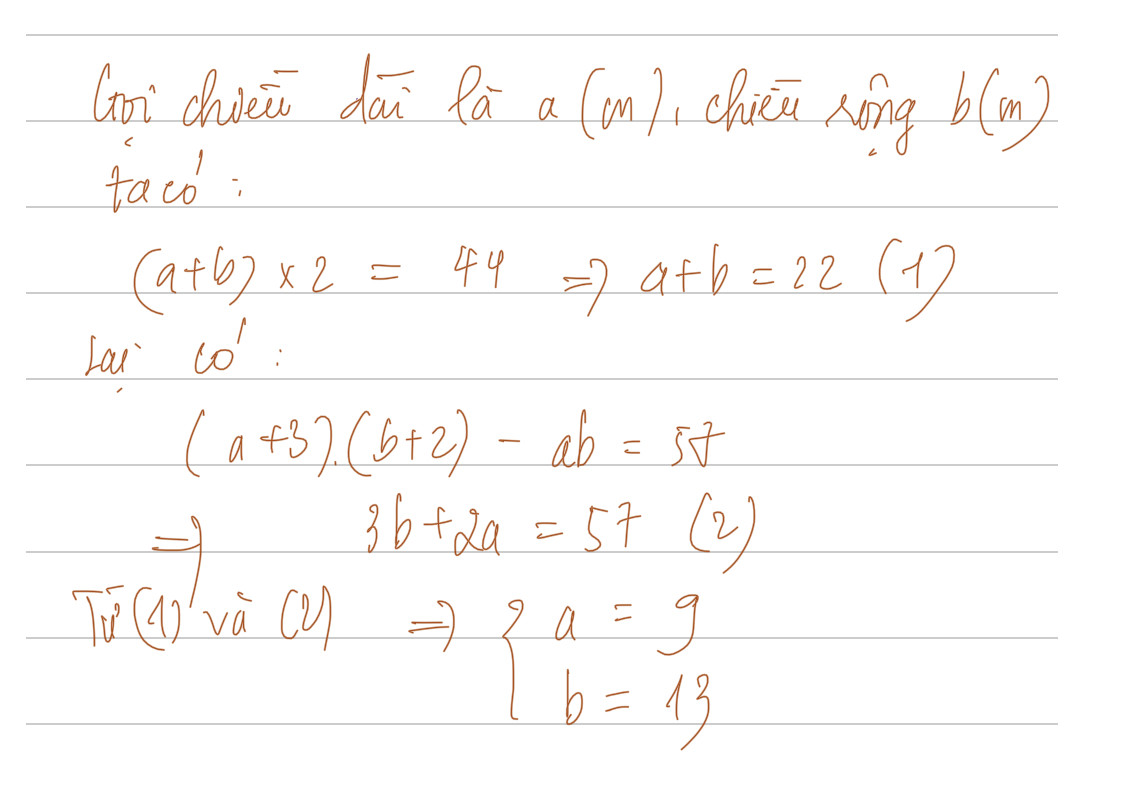 Gọi chiều dài là a (m), chiều rộng b(m)
ta có :
(a+b) x 2 = 44 => a+b = 22 (1)
Lại có :
(a+3).(b+2) - ab = 57
=> 3b+2a = 57 (2)
Từ (1) và (2) => { a = 9
b = 13